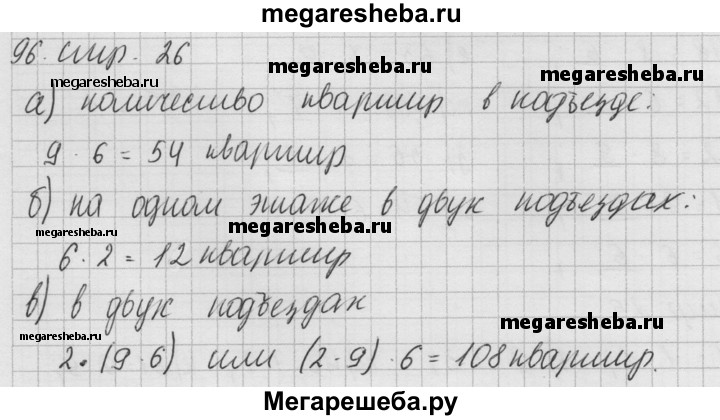 megaresheba.ru
96. стр. 26
megaresheba.ru
megaresheba.ru
megaresheba.ru
а) количество квартир в подъезде:
9 · 6 = 54 квартир
б) на одном этаже в двух подъездах:
megaresheba.ru
megaresheba.ru
6 · 2 = 12 квартир
в) в двух подъездах
megaresheba.ru
megaresheba.ru
2 · (9 · 6) или (2 · 9) · 6 = 108 квартир.
Мегарешеба.ру